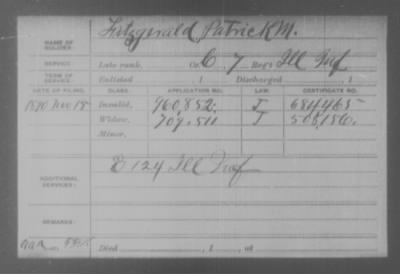 Fitzgerald, Patrick M.
NAME OF SOLDIER:
SERVICE: Late rank, Co. C 7 Reg't Ill Inf
TERM OF SERVICE: Enlisted , 1 Discharged , 1
DATE OF FILING. CLASS. APPLICATION NO. LAW. CERTIFICATE NO.
1890 Nov 18 Invalid, 960,852. J 684465
Widow, 709,511 J 508,156.
Minor,
ADDITIONAL SERVICES: E 124 Ill Inf
REMARKS:
Died , 1 , at